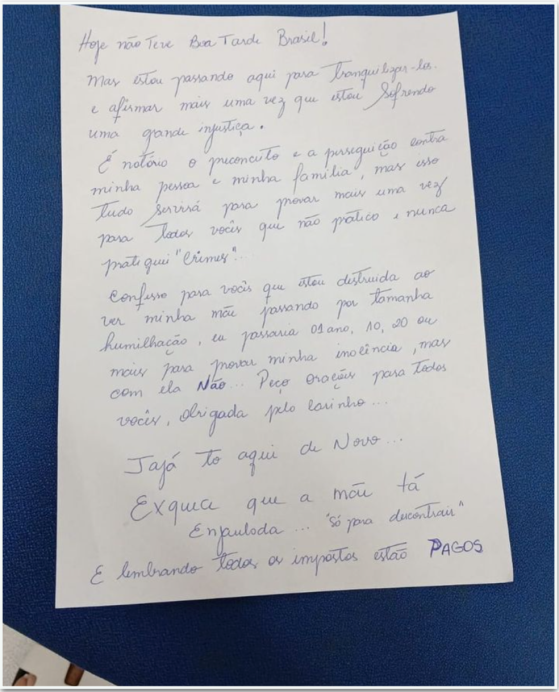 Hoje não Teve Boa Tarde Brasil!
Mas estou passando aqui para Tranquilizar-los.
e afirmar mais uma vez que estou Sofrendo
uma grande injustiça.
É notório o preconceito e a perseguição contra
minha pessoa e minha família, mas isso
tudo servirá para provar mais uma vez
para todos vocês que não pratico e nunca
pratiquei "Crimes"...
Confesso para vocês que estou destruida ao
ver minha mãe passando por tamanha
humilhação, eu passaria 01 ano, 10, 20 ou
mais para provar minha inocência, mas
com ela Não... Peço orações para todos
vocês, obrigada pelo carinho...
Jajá to aqui de Novo...
Exquece que a mãe tá
Enjaulada... "só para descontrair"
E lembrando todos os impostos estão PAGOS